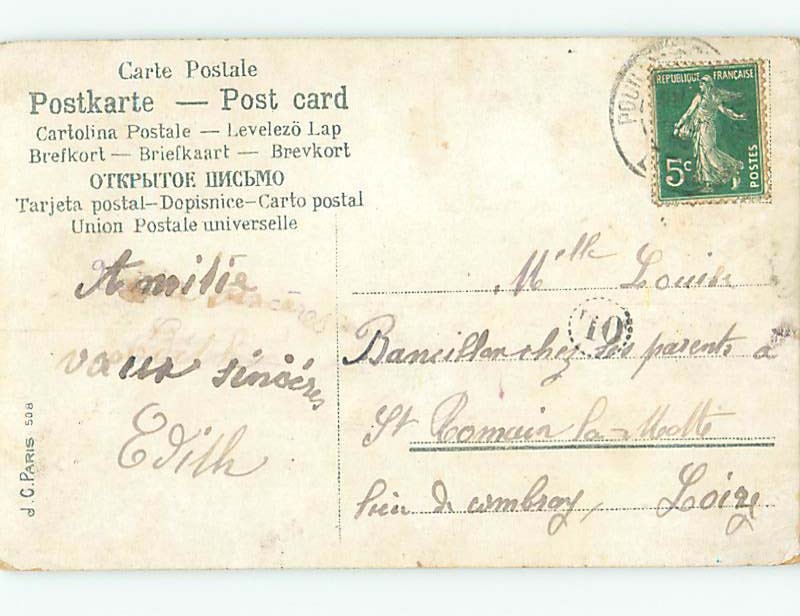 Carte Postale
Postkarte — Post card
Cartolina Postale — Levelező Lap
Brefkort — Briefkaart — Brevkort
ОТКРЫТОЕ ПИСЬМО
Tarjeta postal–Dopisnice–Carto postal
Union Postale universelle
REPUBLIQUE FRANÇAISE
POSTES
5c
Amitié
vœux sincères
Edith
J.C. PARIS 508
Melle Louise
chez ses parents à
St Romain la Motte
lieu de Loire
10